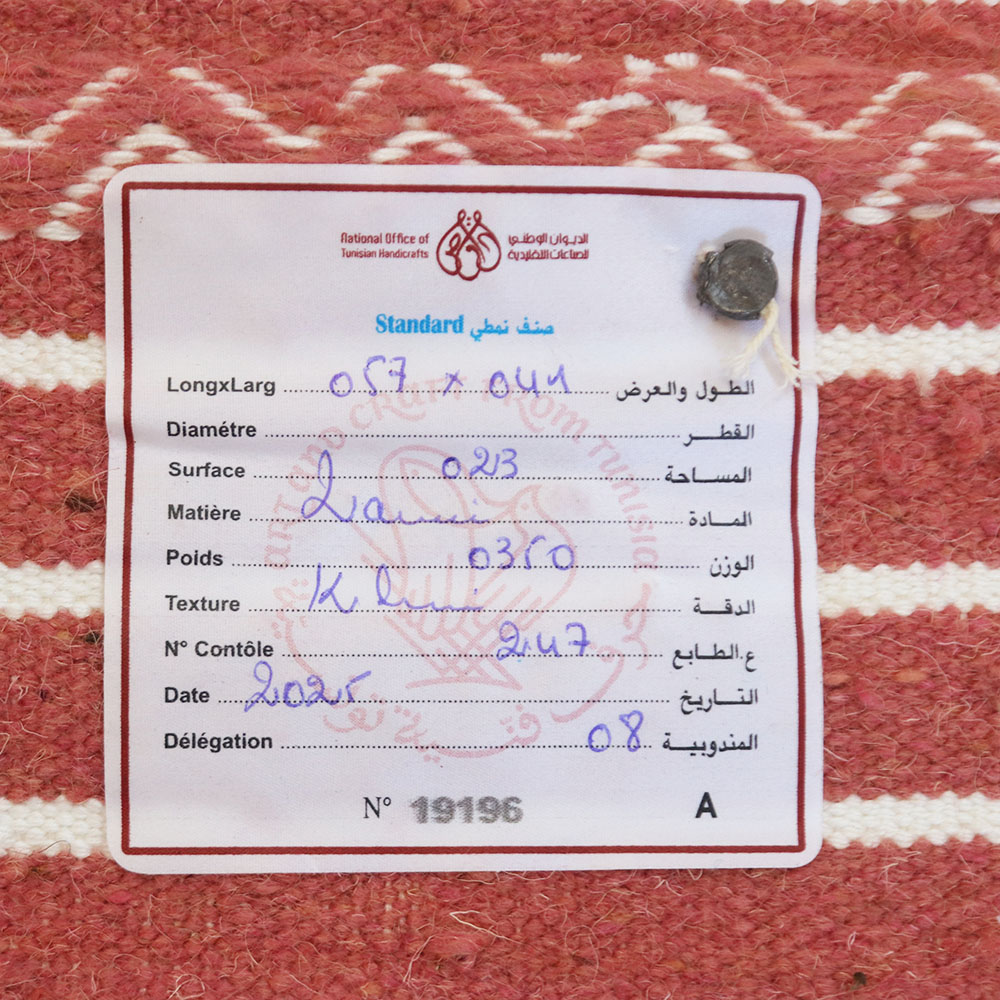 National Office of
Tunisian Handicrafts
الديوان الوطني
للصناعات التقليدية
Standard صنف نمطي
LongxLarg 057 x 041 الطول والعرض
Diamétre القطر
Surface 023 المساحة
Matière المادة
Poids 0350 الوزن
Texture الدقة
N° Contôle 247 ع.الطابع
Date 2025 التاريخ
Délégation 08 المندوبية
N° 19196 A
ART AND CRAFT FROM TUNISIA